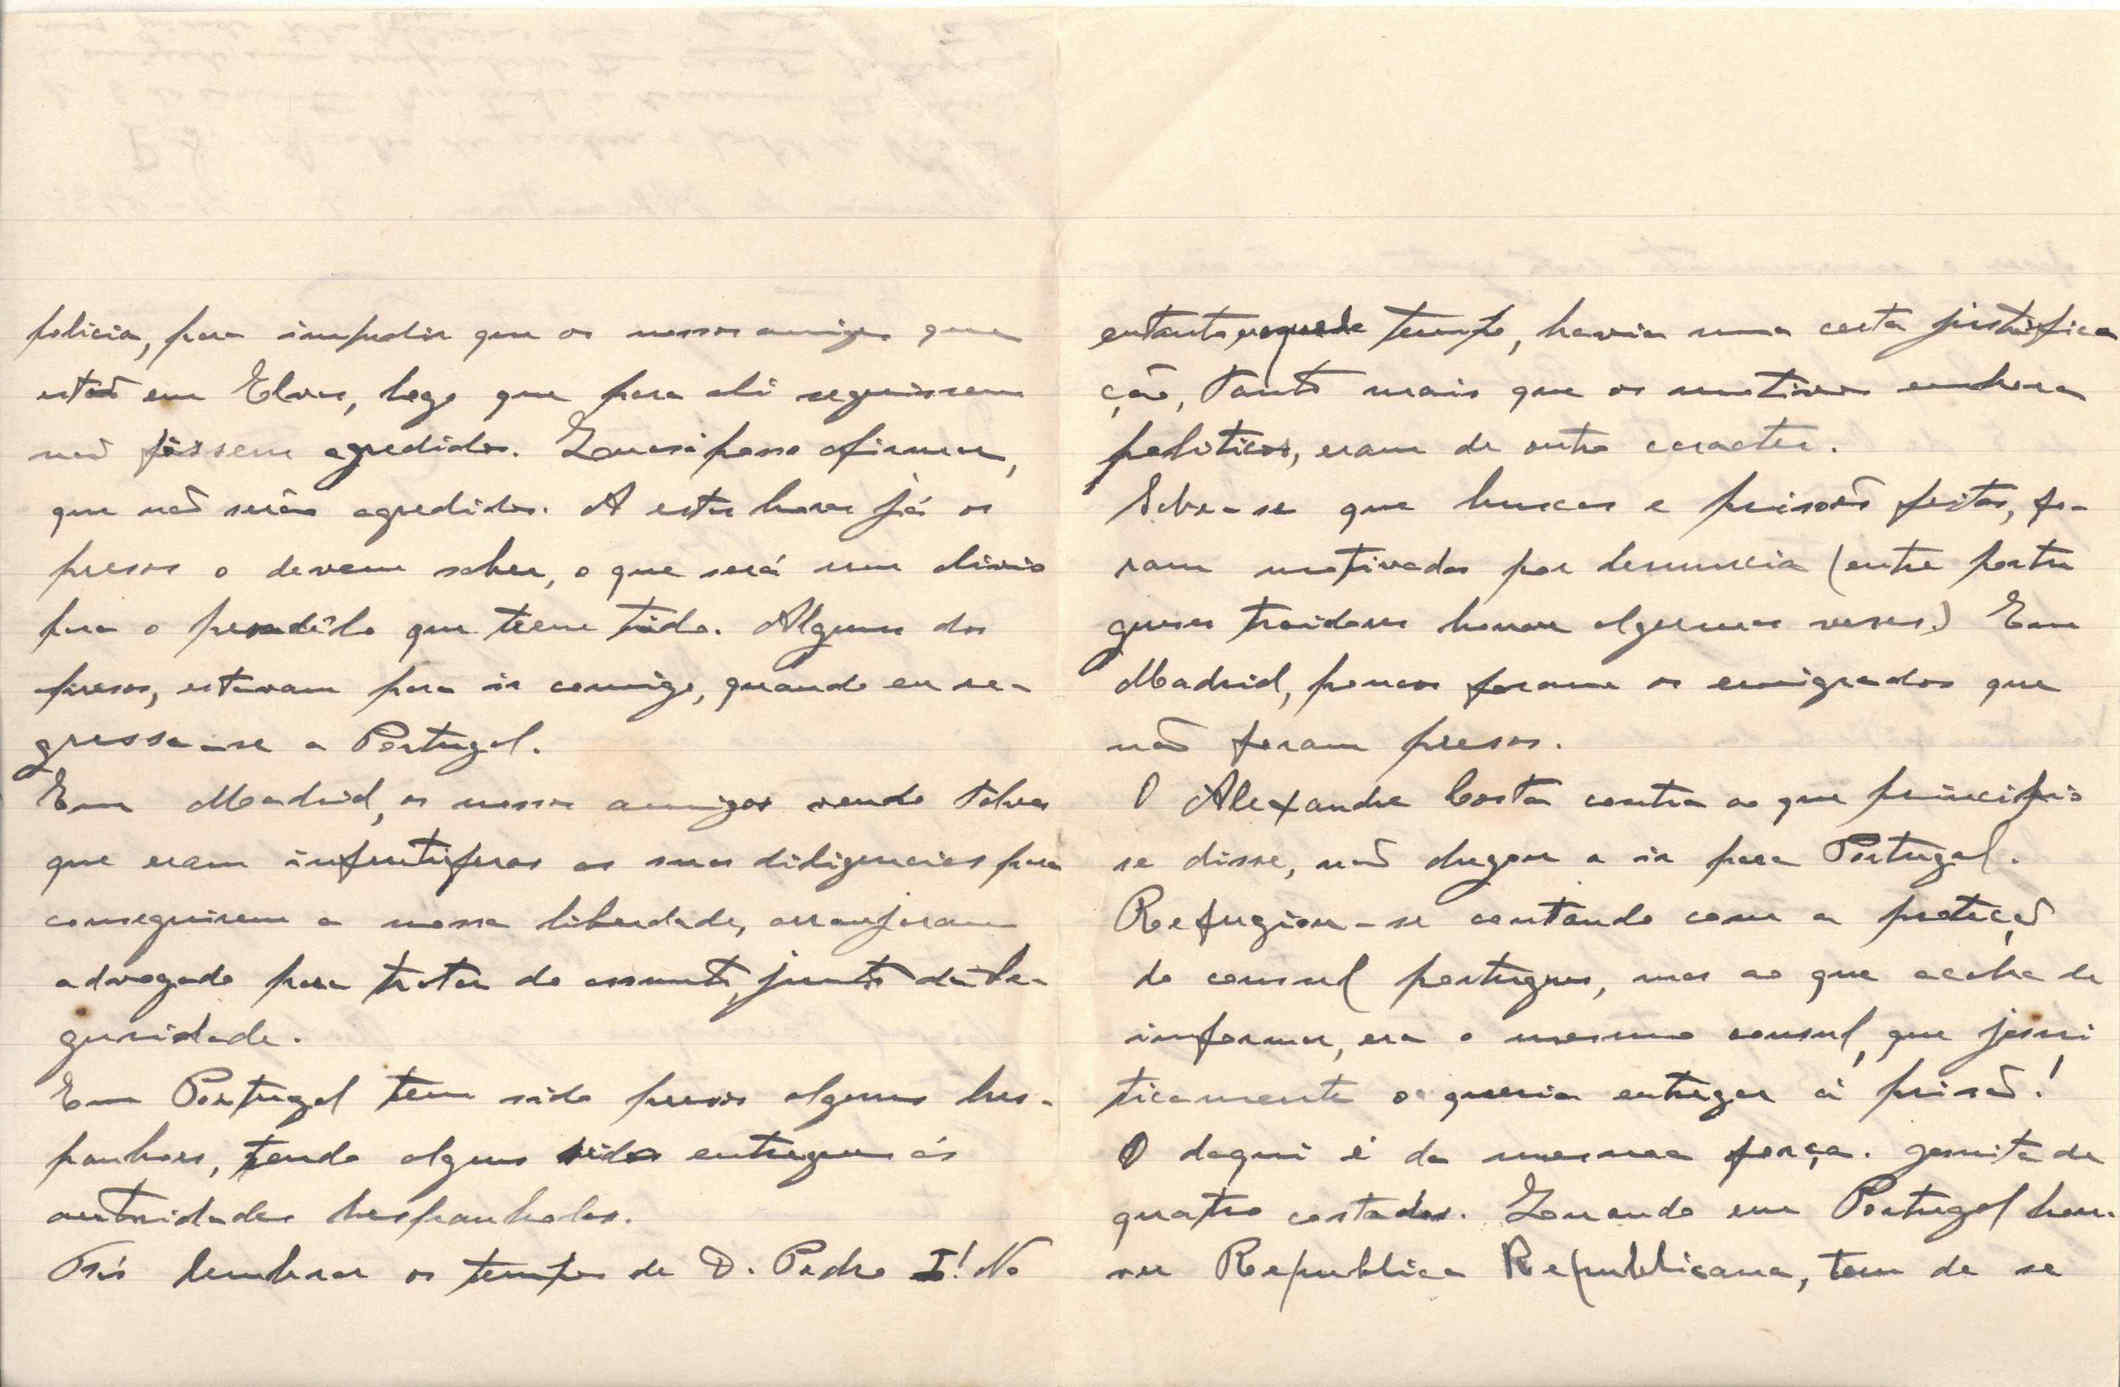 policia, para impedir que os nossos amigos que
estão em Elvas, logo que para ali seguissem
não fôssem agredidos. Quasi posso afirmar,
que não serão agredidos. A estas horas já os
presos o devem saber, o que será um alivio
para o pesadêlo que teem tido. Alguns dos
presos, estavam para ir comigo, quando eu re-
gressa-se a Portugal.
Em Madrid, os nossos amigos vendo talvez
que eram infrutiferas as suas diligencias para
conseguirem a nossa liberdade, arranjaram
advogado para tratar do assunto, junto da Se-
guridade.
Em Portugal tem sido presos alguns hes-
panhoes, tendo alguns sido entregues ás
autoridades hespanholas.
Faz lembrar os tempos de D. Pedro I! No
entanto naquele tempo, havia uma certa justifica
ção, tanto mais que os motivos embora
politicos, eram de outro caracter.
Sabe-se que buscas e prisões feitas, fo-
ram motivadas por denuncia (entre portu
gueses traidores houve algumas vezes.) Em
Madrid, poucos foram os emigrados que
não foram presos.
O Alexandre Costa contra ao que principio
se disse, não chegou a ir para Portugal.
Refugiou-se contando com a proteção
do consul portuguez, mas ao que acaba de
informar, era o mesmo consul, que jesui
ticamente o queria entregar á prisão!
O daqui é da mesma força. Jesuita de
quatro costados. Quando em Portugal hou-
ver Republica Republicana, tem de se